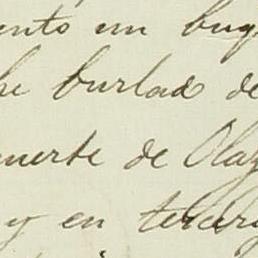 ento un buq
he burlado de
muerte de Olaz
y en tercer